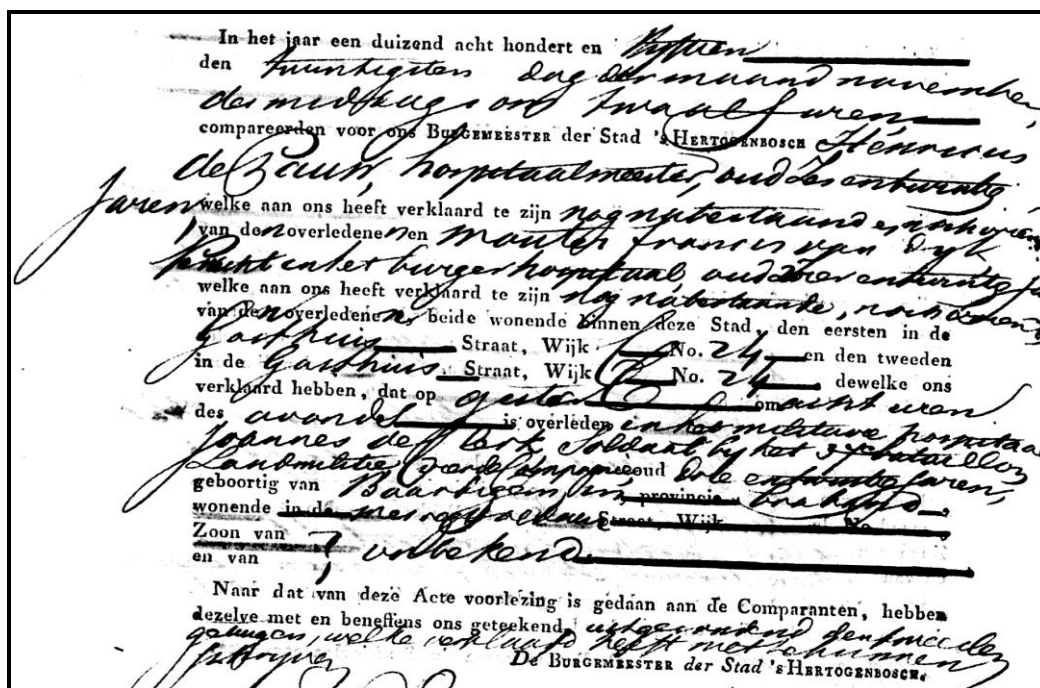 In het jaar een duizend acht hondert en Vyftien
den twintigsten dag der maand november,
des middags om twaalf uren
compareerden voor ons BURGEMEESTER der Stad 's HERTOGENBOSCH Henricus
de Pauw, hospitaalmeester, oud zes entwintig
Jaren, welke aan ons heeft verklaard te zijn nog nabestaand,
van den overledenen en francis van Dyk
in het burger hospitaal, oud
welke aan ons heeft verklaard te zijn nog nabestaande,
van den overledenen, beide wonende binnen deze Stad, den eersten in de
Gasthuis Straat, Wijk No. 24 en den tweeden
in de Gasthuis Straat, Wijk No. 24 dewelke ons
verklaard hebben, dat op gisteren om acht uren
des avonds is overleden in het militaire hospitaal
Joannes de Clerk, Soldaat by het bataillon
Landmilitie oud drie entwintig Jaren,
geboortig van in provincie braband,
wonende in de Straat, Wijk No.
Zoon van
en van } onbekend.
Naar dat van deze Acte voorlezing is gedaan aan de Comparanten, hebben
dezelve met en beneffens ons geteekend, uitgezonderd den tweeden
getuigen, welke verklaard heeft niet te kunnen
schryven
De BURGEMEESTER der Stad 's HERTOGENBOSCH.